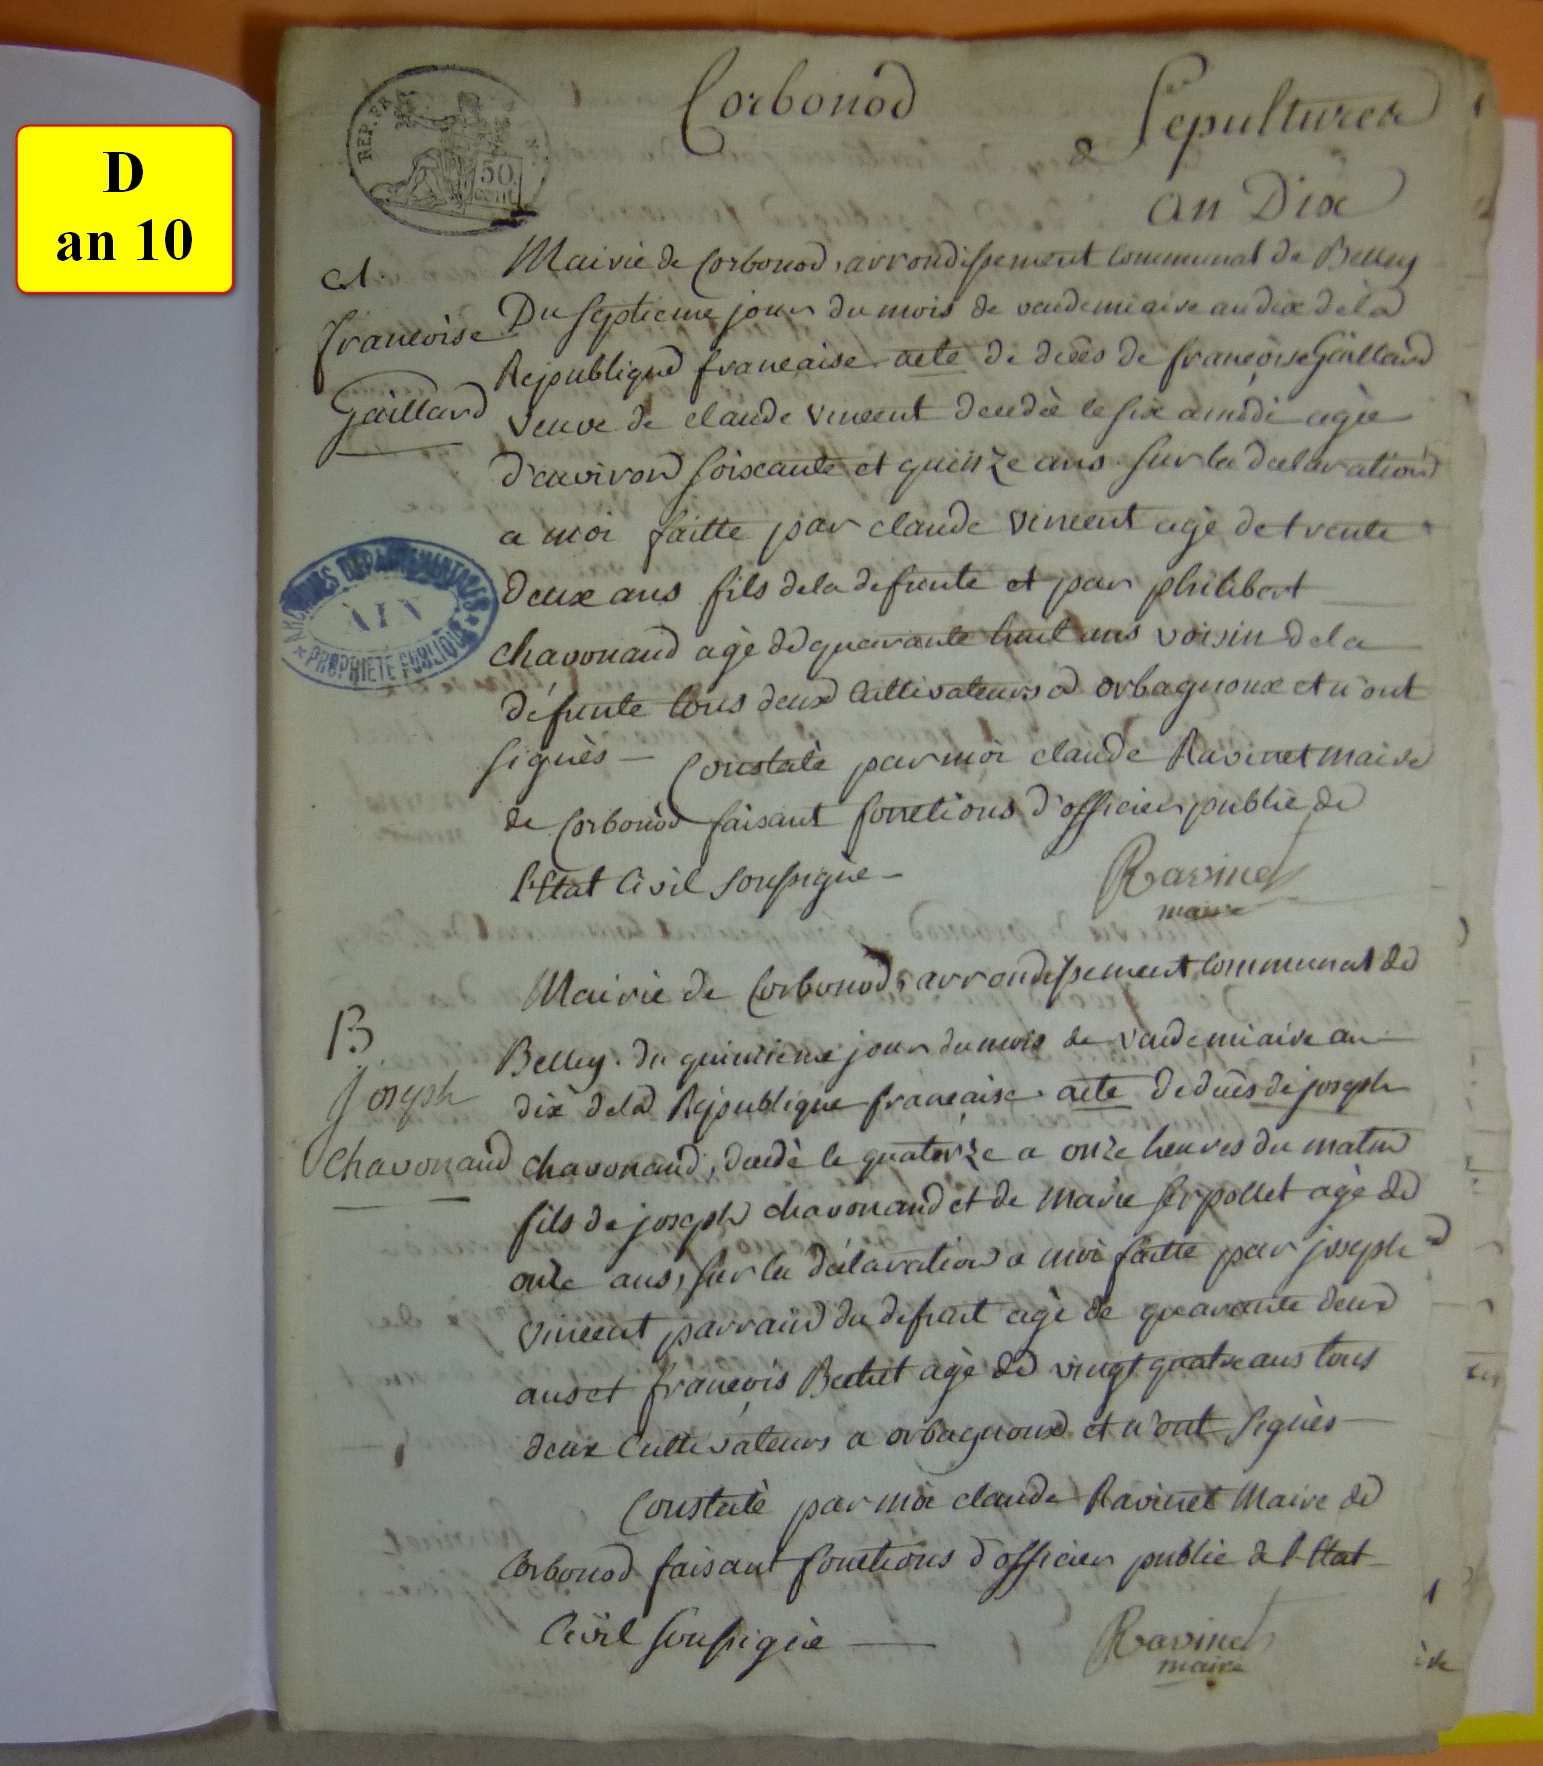 D
an 10
REP. FRA
50
CENT.
Corbonod
Sepultures
an Dix
A
francoise
Gaillard
Mairie de Corbonod, arrondissement communal de Belley
Du septieme jour du mois de vendemiaire an dix de la
Republique francaise acte de decès de francoise Gaillard
veuve de claude vincent decedèe le six a midi agèe
d'environ soixante et quinze ans sur la declaration
a moi faitte par claude vincent agè de trente
deux ans fils de la defunte et par philibert
chavonand agè de quarante huit ans voisin de la
défunte tous deux Cultivateurs a orbagnoux et n'ont
signès — Constatè par moi claude Ravinet maire
de Corbonod faisant fonctions d'officier public de
l'Etat Civil soussignè —
Ravinet
maire
ARCHIVES DEPARTEMENTALES
AIN
* PROPRIETE PUBLIQUE *
B
joseph
chavonand
Mairie de Corbonod, arrondissement communal de
Belley. du quinzieme jour du mois de vendemiaire an
dix de la Republique francaise acte de decès de joseph
chavonand, decedè le quatorze a onze heures du matin
fils de joseph chavonand et de Marie serpollet agè de
onze ans, sur la déclaration a moi faitte par joseph
vincent parrain du defunt agè de quarante deux
ans et francois Bechet agè de vingt quatre ans tous
deux Cultivateurs a orbagnoux et n'ont signès —
Constatè par moi claude Ravinet Maire de
Corbonod faisant fonctions d'officier public de l'Etat
Civil soussignè —
Ravinet
maire